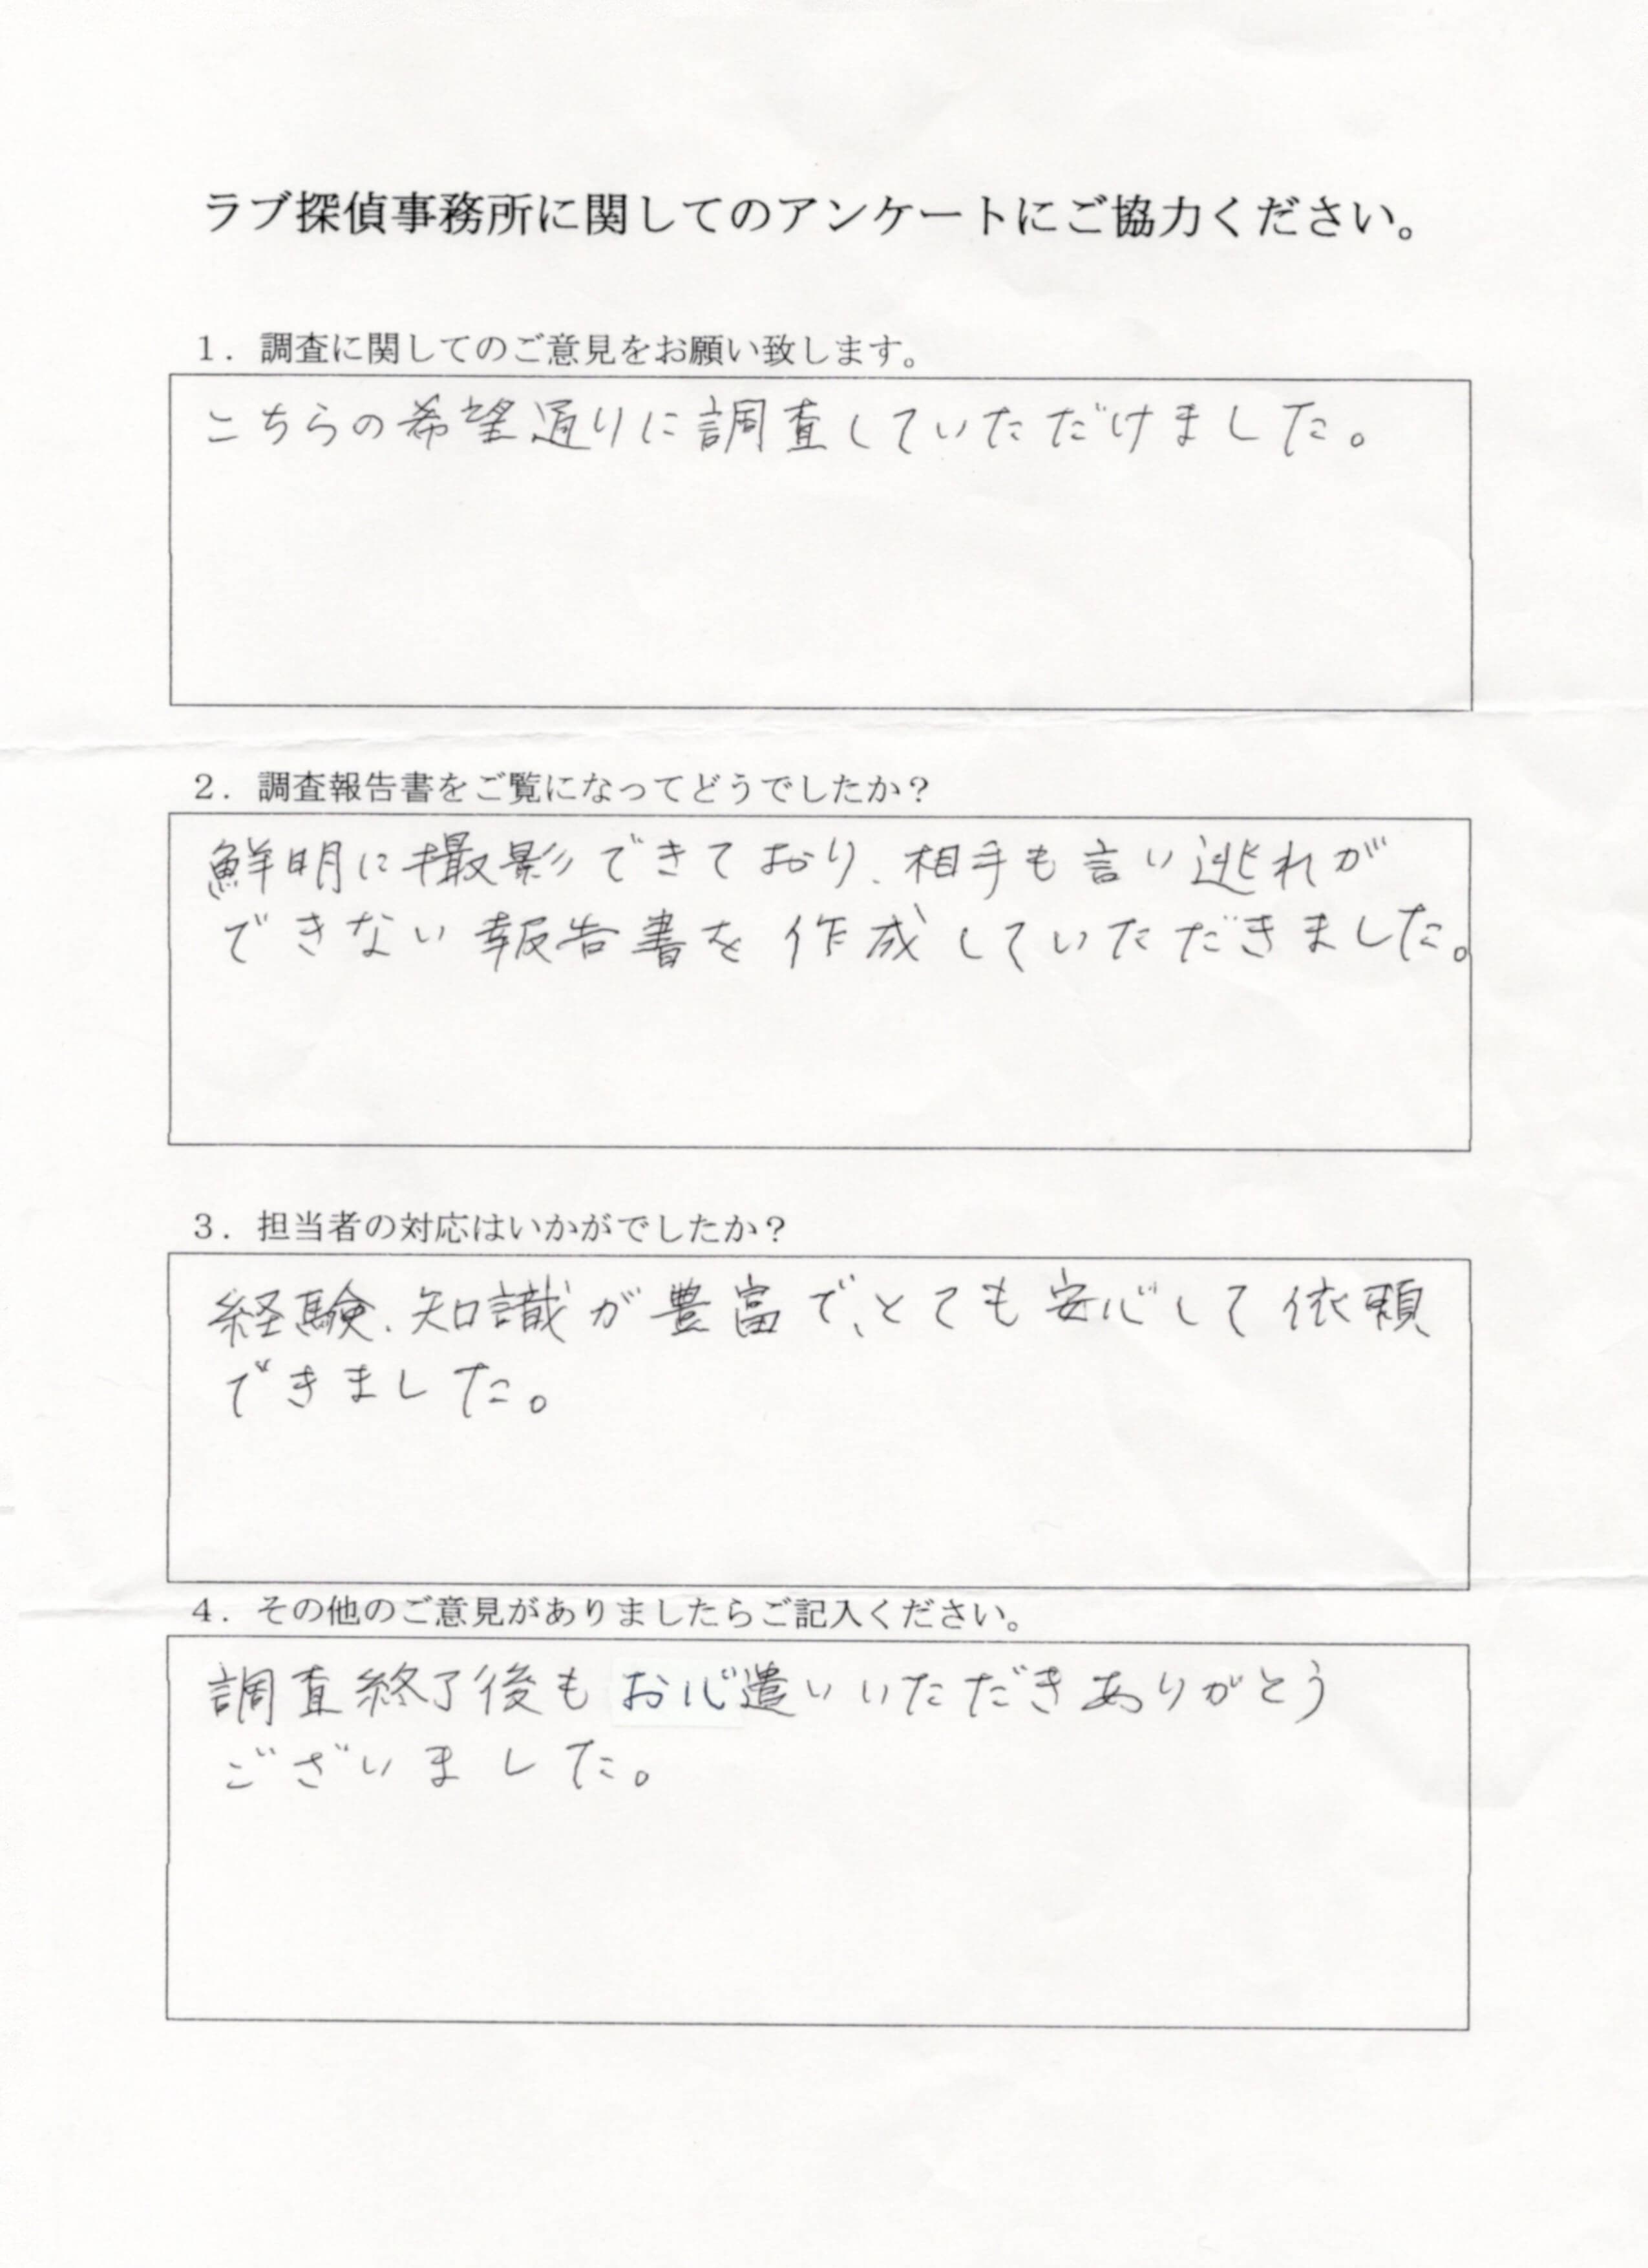 ラブ探偵事務所に関してのアンケートにご協力ください。
1．調査に関してのご意見をお願い致します。
こちらの希望通りに調査していただけました。
2．調査報告書をご覧になってどうでしたか？
鮮明に撮影できており、相手も言い逃れが
できない報告書を作成していただきました。
3．担当者の対応はいかがでしたか？
経験、知識が豊富で、とても安心して依頼
できました。
4．その他のご意見がありましたらご記入ください。
調査終了後もお心遣いいただきありがとう
ございました。